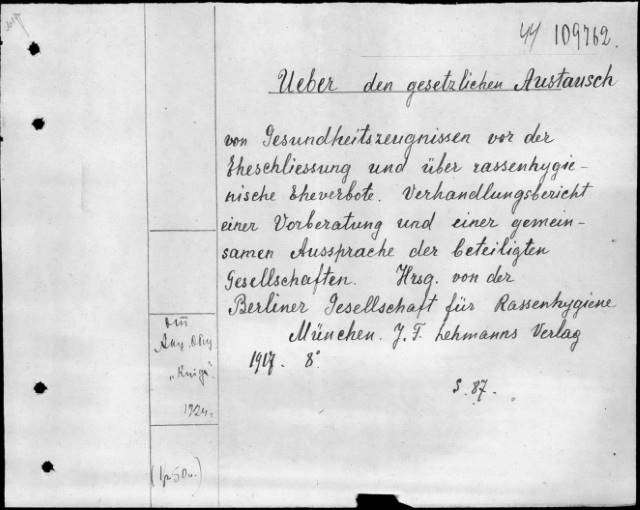 44 109762.
Ueber den gesetzlichen Austausch
von Gesundheitszeugnissen vor der
Eheschliessung und über rassenhygie-
nische Eheverbote. Verhandlungsbericht
einer Vorberatung und einer gemein-
samen Aussprache der beteiligten
Gesellschaften. Hrsg. von der
Berliner Gesellschaft für Rassenhygiene
München. J. F. Lehmanns Verlag
1917. 8°
S. 87.
"Книга"
1924.